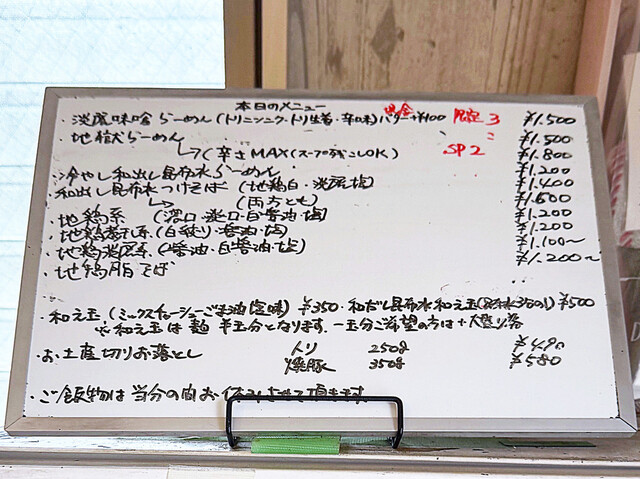 本日のメニュー
・淡麗味噌らーめん(トリニンニク・トリ生姜・辛味)バター+¥100 現金 限定3 ¥1.500
・地獄らーめん ¥1.500
→(辛さMAX(スープ残しOK) SP2 ¥1.800
・冷やし和出し昆布水らーめん ¥1.200
・和出し昆布水つけそば (地鶏白・淡麗塩) ¥1.400
→ (両方とも) ¥1.600
・地鶏系 (濃口・淡口・白醤油・塩) ¥1.200
・地鶏系(白絞り・醤油・塩) ¥1.200
・地鶏淡麗系(醤油・白醤油・塩) ¥1.100〜
・地鶏脂そば ¥1.200〜
・和え玉(ミックスチャーシューごま油塩味) ¥350・和だし昆布水和え玉(昆布水3分の1) ¥500
※和え玉は麺半玉分となります。一玉分ご希望の方は+大盛り券
・お土産切りお落とし トリ 250g ¥490
焼豚 350g ¥580
・ご飯物は当分の間お休みさせて頂きます